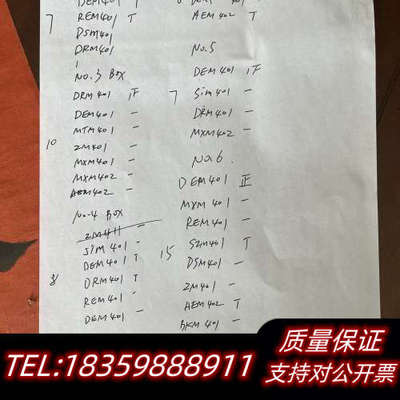 DEM401 T
7 REM401 T
DSM401
DRM401
No.3 BOX
DRM401 正
DEM401 一
MTM401 一
10 ZM401 一
MXM401 一
MXM402 一
AEM402 一
No-4 BOX
SIM401 一
DEM401 T
8 DRM401 T
REM401 一
DEM401 一
AEM402 T
No.5
DEM401 正
7 SIM401 一
DRM401 一
MXM402 一
No.6.
DEM401 正
MXM401 一
REM401 一
SZM401 T
15 DSM401 一
ZM401 一
AEM402 T
BKM401 一
质量保证
TEL:18359888911
支持对公开票